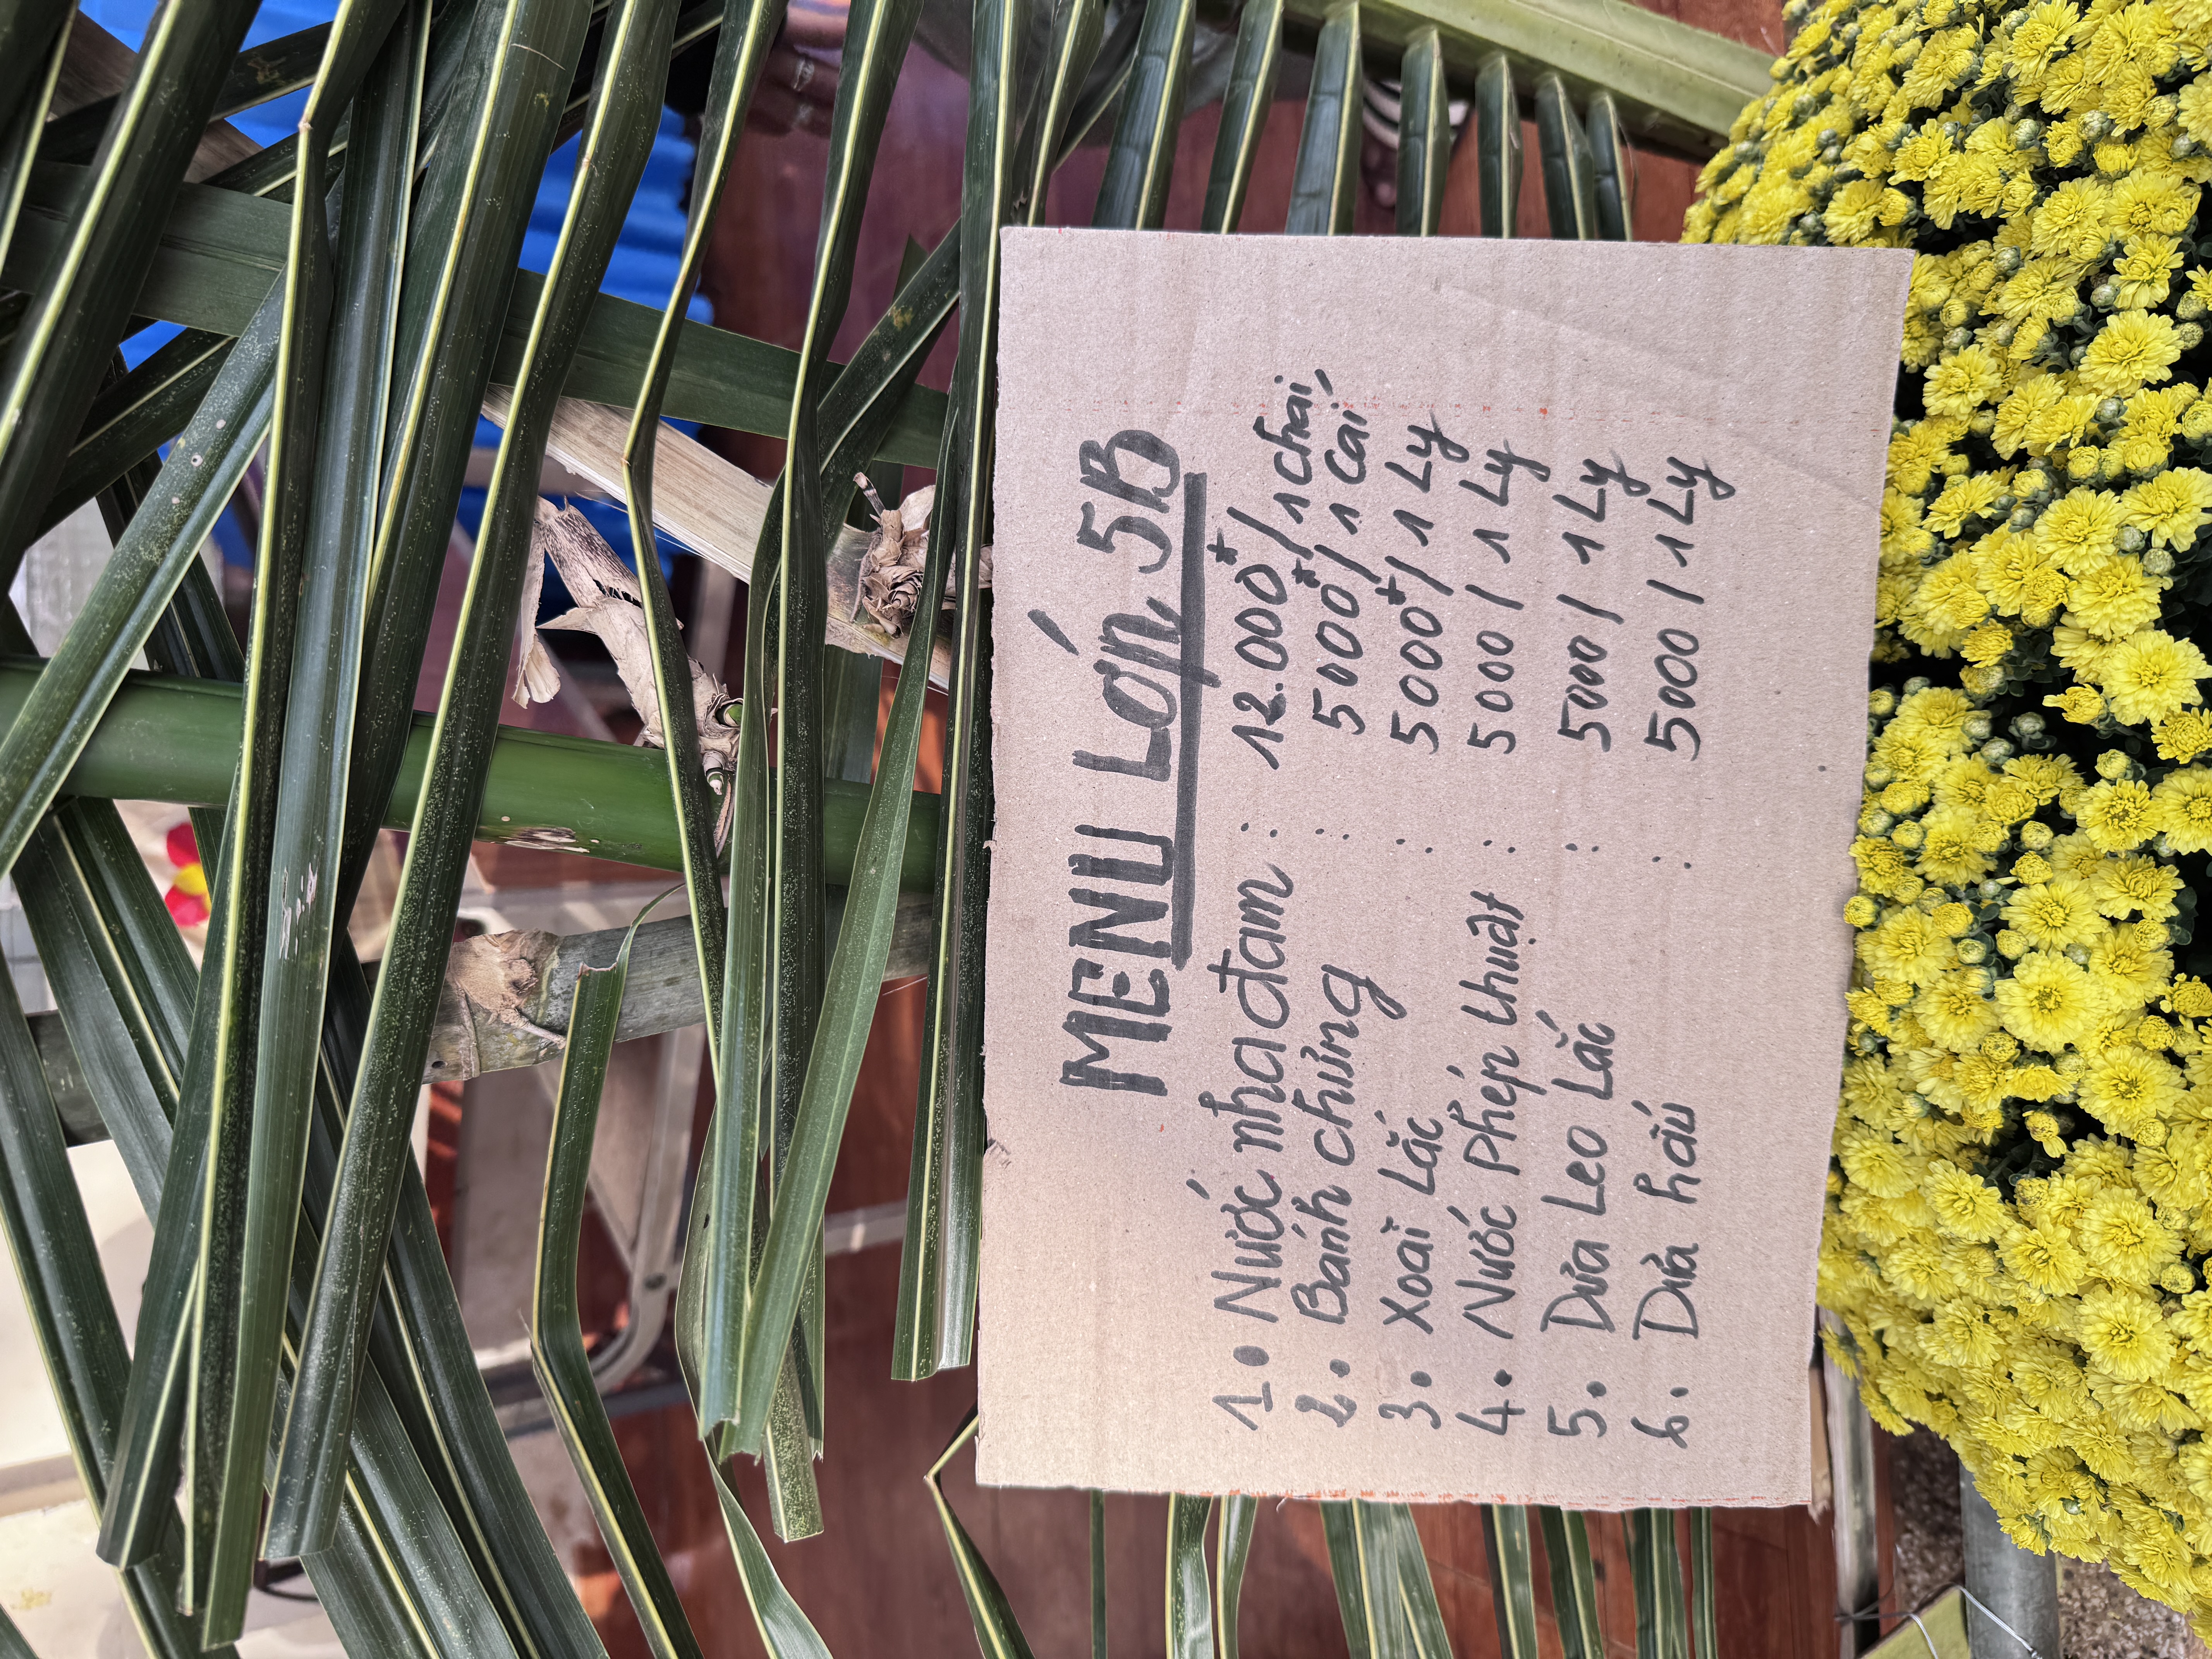 MENU Lớn, 5B
1. Nước nha đam : 12.000đ/1 chai,
2. Bánh chưng : 5000đ/1 cái,
3. Xoài Lắc : 5000đ/1 Ly
4. Nước Phép thuật : 5000/1 Ly
5. Dưa Leo Lắc : 5000/1 Ly
6. Dưa hấu : 5000/1 Ly